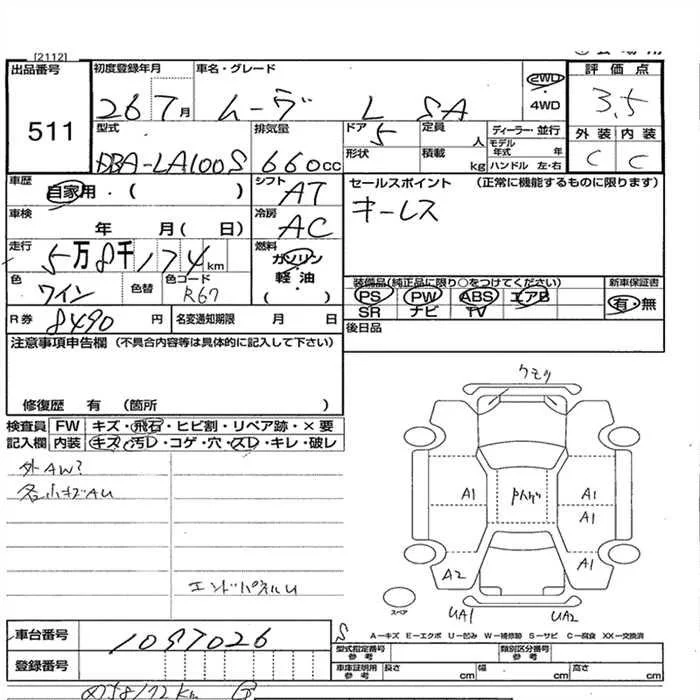 [2112]
出品番号 511
初度登録年月 26 7月
車名・グレード ムーヴ L SA
2WD・4WD
評価点 3.5
外装 C 内装 C
型式 DBA-LA100S
排気量 660cc
ドア 5 形状
定員 人 積載 kg
ディーラー・並行
モデル年式 年
ハンドル 左・右
車歴 自家用・( )
シフト AT
セールスポイント (正常に機能するものに限ります)
キーレス
車検 年 月( 日)
冷房 AC
走行 5万8千174km
燃料 ガソリン・軽油 ( )
色 ワイン 色替 色コード R67
装備品(純正品に限り○をつけてください)
PS PW ABS エアB
SR ナビ TV
新車保証書 有・無
R券 8490円 名変通知期限 月 日
後日品
注意事項申告欄 (不具合内容等は具体的に記入して下さい)
修復歴 有 (箇所 )
検査員記入欄
FW キズ・飛石・ヒビ割・リペア跡・×要
内装 キズ・汚レ・コゲ・穴・スレ・キレ・破レ
外AW?
各小キズAU
クモリ
A1 A1
A1
A2 A1
スペア UA1 UA2
A−キズ E−エクボ U−凹み W−補修跡 S−サビ C−腐食 XX−交換済
車台番号 1097026
登録番号
型式指定番号 参考
類別区分番号 参考
車庫証明用 参考 長さ cm 幅 cm 高さ cm